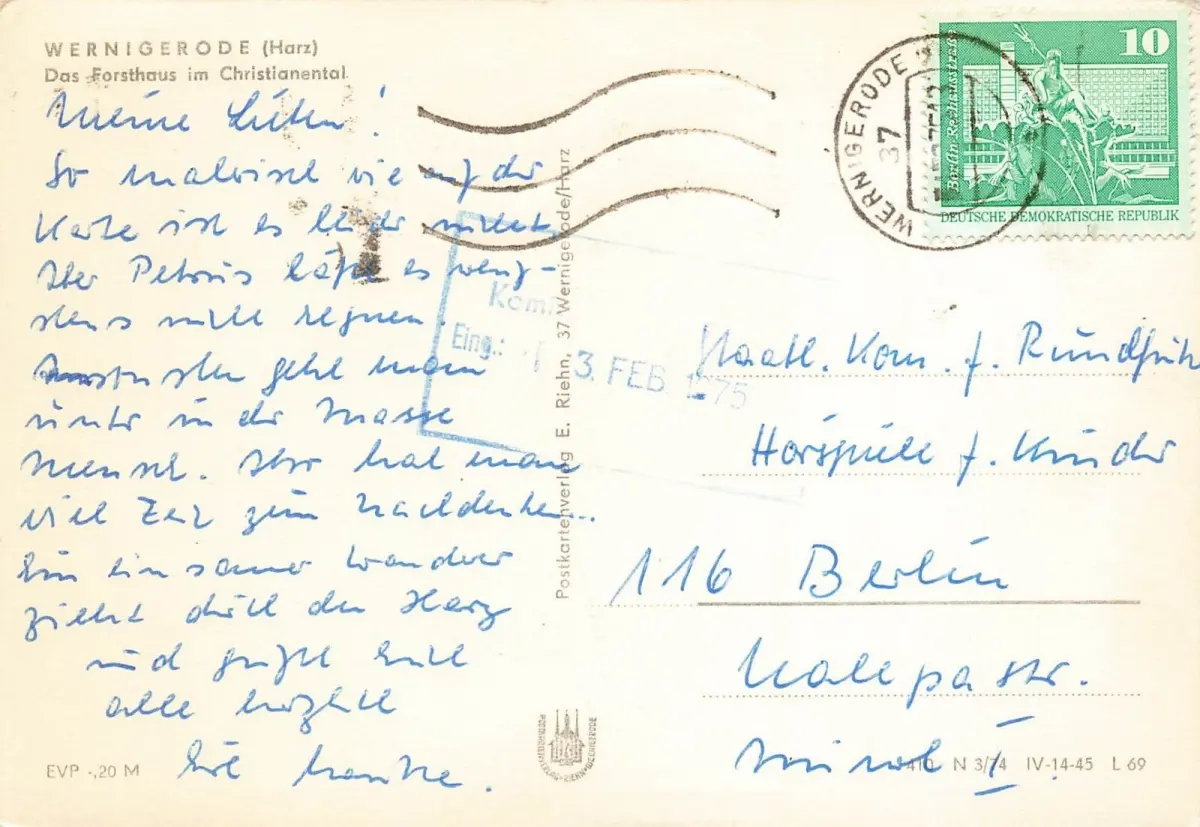 WERNIGERODE (Harz)
Das Forsthaus im Christianental
Meine Lieben!
So malerisch wie auf der
Karte ist es leider nicht
Aber Petrus läßt es wenig-
stens nicht regnen.
Ansonsten geht man
unter in der Masse
Mensch. Also hat man
viel Zeit zum Nachdenken...
Ein einsamer Wanderer
zieht durch den Harz
und grüßt Euch
alle herzlich
EVP -,20 M
Postkartenverlag E. Riehn, 37 Wernigerode/Harz
Kom
Eing.: 13. FEB. 1975
WERNIGERODE
37
10
Berlin-Rathausstraße
DEUTSCHE DEMOKRATISCHE REPUBLIK
Staatl. Kom. f. Rundfunk
Hörspiele f. Kinder
116 Berlin
Nalepastr.
N 3/74 IV-14-45 L 69